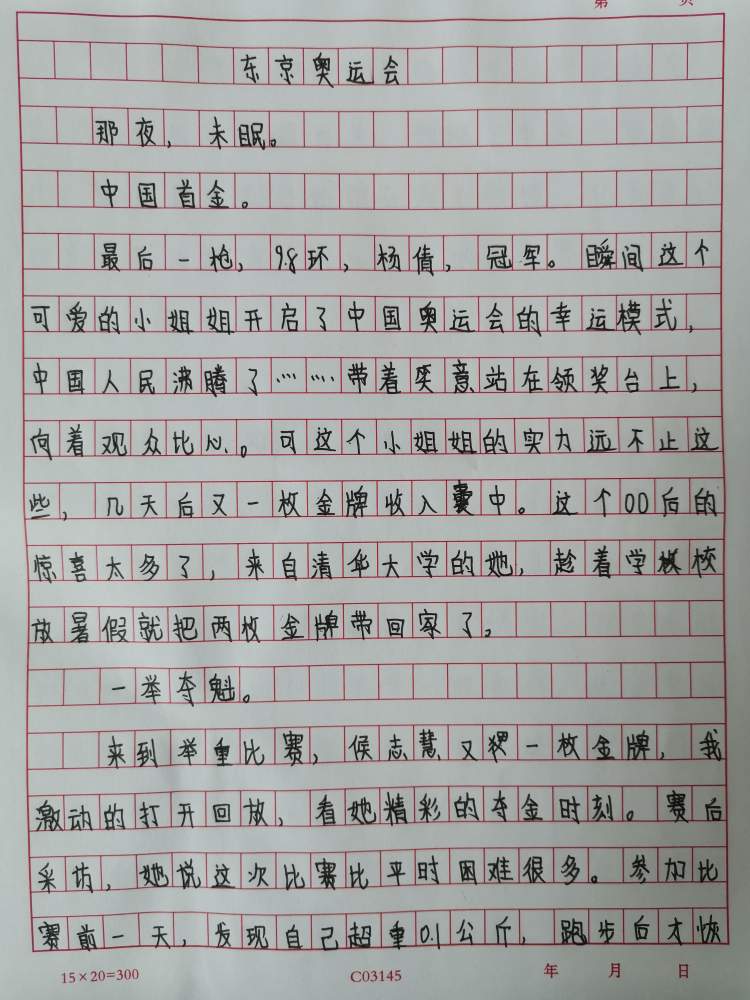 第 页
东京奥运会
那夜，未眠。
中国首金。
最后一枪，9.8环，杨倩，冠军。瞬间这个
可爱的小姐姐开启了中国奥运会的幸运模式，
中国人民沸腾了……带着笑意站在领奖台上，
向着观众比心。可这个小姐姐的实力远不止这
些，几天后又一枚金牌收入囊中。这个00后的
惊喜太多了，来自清华大学的她，趁着学校
放暑假就把两枚金牌带回家了。
一举夺魁。
来到举重比赛，侯志慧又获一枚金牌，我
激动的打开回放，看她精彩的夺金时刻。赛后
采访，她说这次比赛比平时困难很多。参加比
赛前一天，发现自己超重0.1公斤，跑步后才恢
15×20=300 C03145 年 月 日